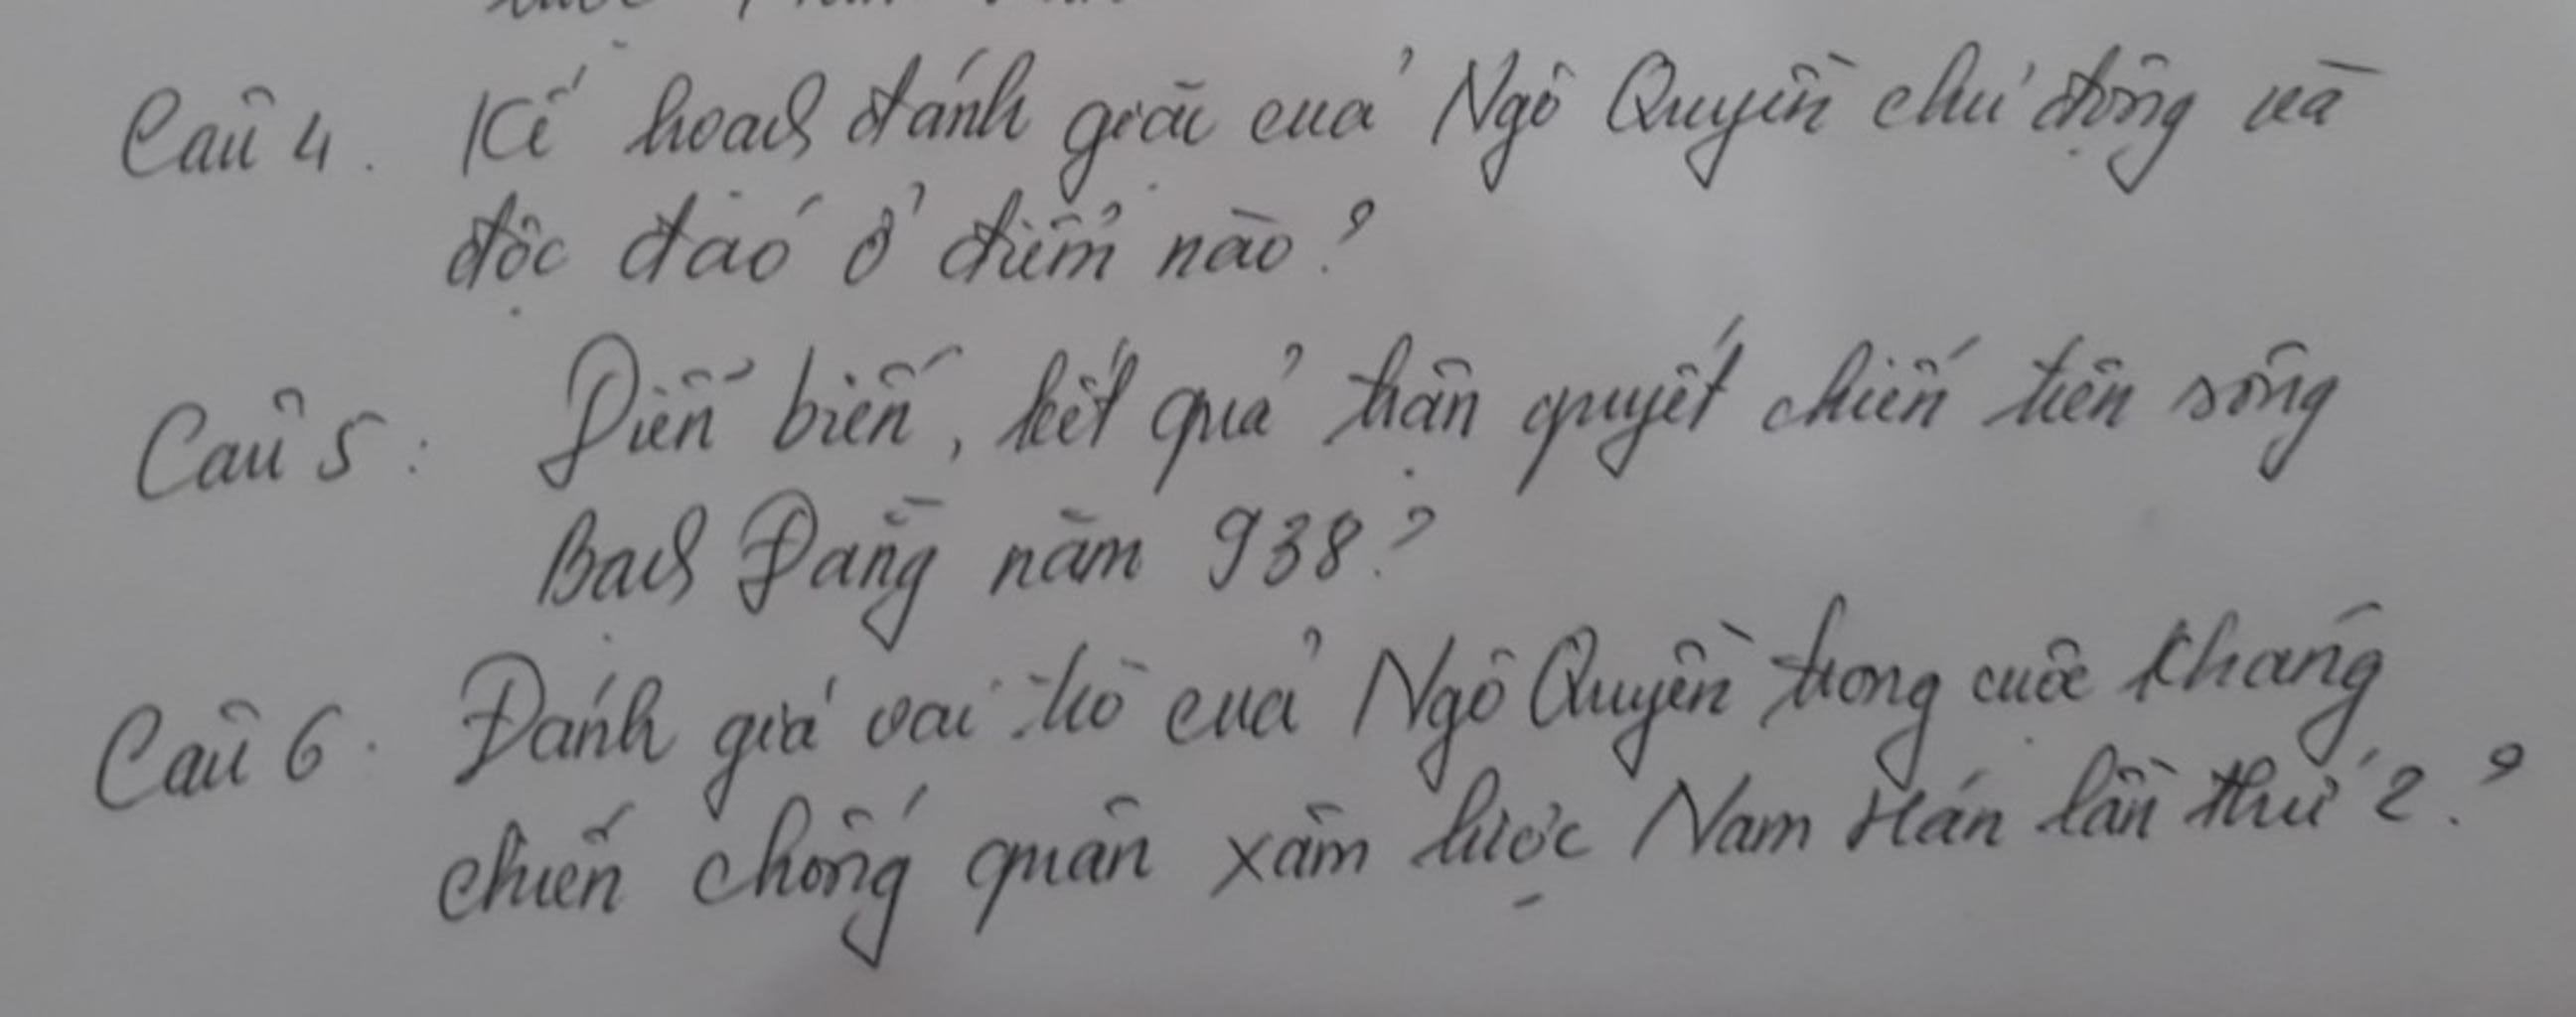 Câu 4. Kế hoạch đánh giặc của Ngô Quyền chủ động và
độc đáo ở điểm nào?
Câu 5: Diễn biến, kết quả trận quyết chiến trên sông
Bạch Đằng năm 938?
Câu 6. Đánh giá vai trò của Ngô Quyền trong cuộc kháng
chiến chống quân xâm lược Nam Hán lần thứ 2.?